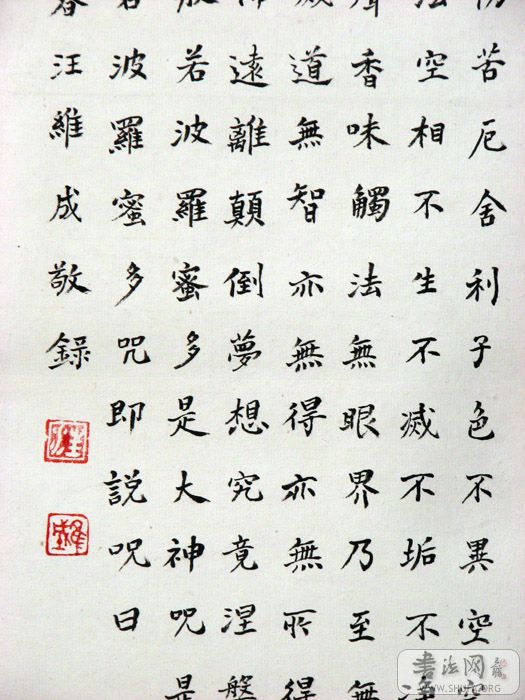 苦厄舍利子色不異空
空相不生不滅不垢不
香味觸法無眼界乃至無
道無智亦無得亦無所得
遠離顛倒夢想究竟涅盤
若波羅蜜多是大神咒是
波羅蜜多咒即說咒曰
春汪維成敬錄
書法网
WWW.SHUFA.ORG